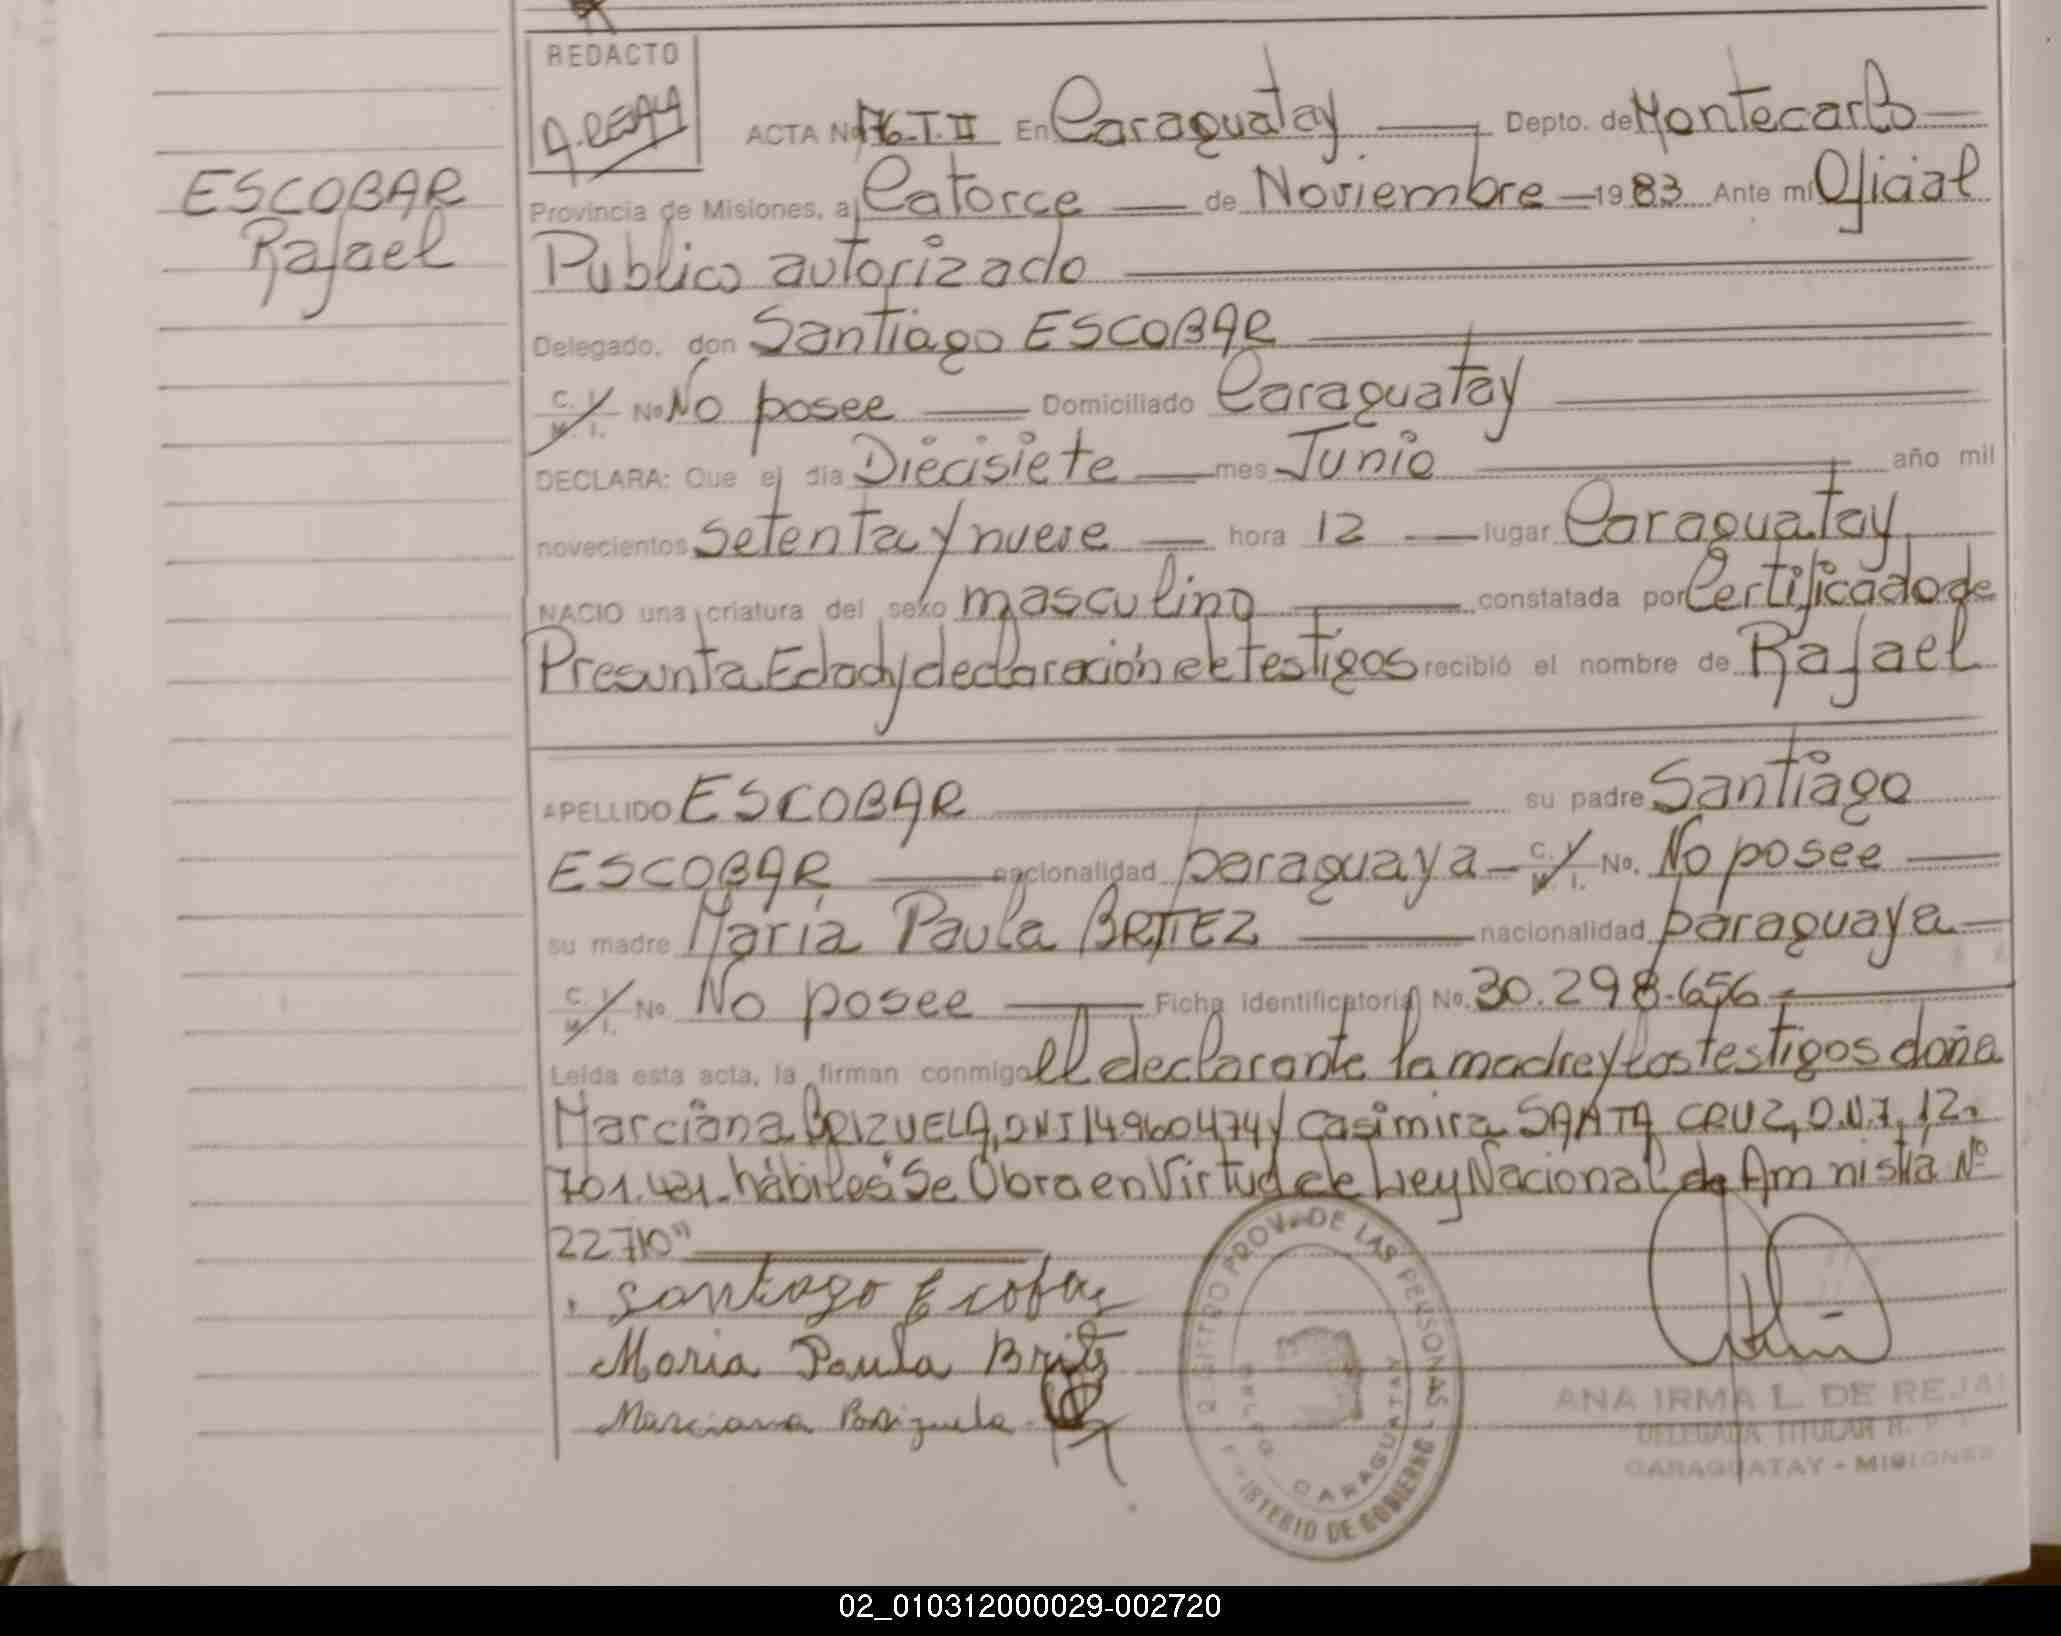 REDACTO
A. REJALA
ESCOBAR
Rafael
ACTA No 76-T.II En Caraguatay Depto. de Montecarlo
Provincia de Misiones, a Catorce de Noviembre 1983 Ante mi Oficial
Publico autorizado
Delegado, don Santiago ESCOBAR
C. I. M. I. No No posee Domiciliado Caraguatay
DECLARA: Que el dia Diecisiete mes Junio año mil
novecientos setenta y nueve hora 12 lugar Caraguatay
NACIO una criatura del sexo masculino constatada por Certificado de
Presunta Edad y declaración de testigos recibió el nombre de Rafael
APELLIDO ESCOBAR su padre Santiago
ESCOBAR nacionalidad paraguaya C. I. M. I. No. No posee
su madre María Paula BRITEZ nacionalidad paraguaya
C. I. M. I. No No posee Ficha identificatoria No. 30.298.656
Leida esta acta, la firman conmigo el declarante la madre y los testigos doña
Marciana BRIZUELA, DNI 14960474 y Casimira SANTA CRUZ, D.N.I. 12.
701.431. hábiles "Se Obra en Virtud de Ley Nacional de Amnistía Nº
22710"
Santiago Escobar
Maria Paula Britez
Marciana Brizuela
REGISTRO PROV. DE LAS PERSONAS
MINISTERIO DE GOBIERNO
CARAGUATAY
ANA IRMA L. DE REJAL
DELEGADA TITULAR R. P.
CARAGUATAY - MISIONES
02_010312000029-002720